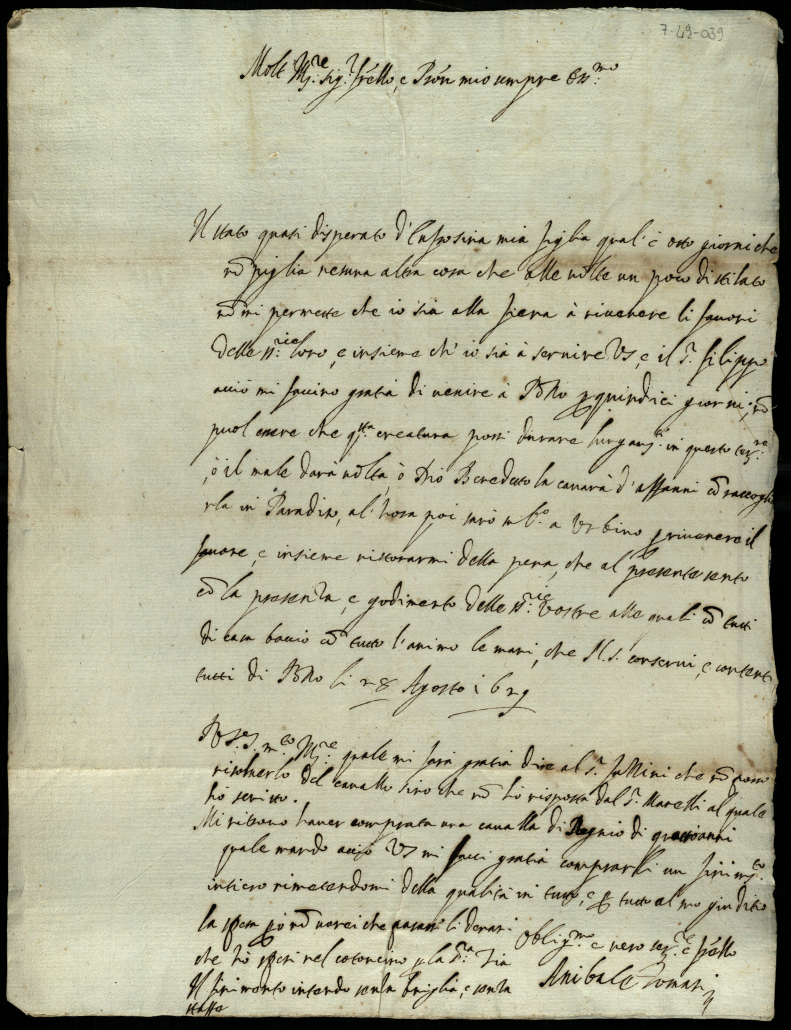 7-49-039
Molt Mg.re Sig.r frello, e Prōn mio sempre Oss.mo
Il stato quasi disperato d' mia figlia qual' è otto giorni che
nō piglia nesuna altra cosa che alle volte un poco distilato
nō mi permette che io sia alla fiera à ricevere li favori
delle SS.rie loro, e insieme ch' io sia à servire VS, e il S.r Filippo
acciò mi faccino gratia di venire à quindici giorni, nō
puol essere che q.sta creatura possi durare in questo
, ò il male darà volta, ò Dio Benedetto la cavarà d'affanni cō raccoglie
rla in Paradiso, al' hora poi sarò sub.o a Urbino p ricevere il
favore, e insieme ristorarmi della pena, che al presente sento
cō la presenza, e godimento delle SS.rie Vostre alle quali cō tutti
di casa baccio cō tutto l'animo le mani, che N.S. conservi, e contenti
tutti di li 28 Agosto 1629
m.to Mg.re quale mi farà gratia dire al S.r che nō posso
risolverlo del cavallo sino che nō hò risposta dal S.r al quale
hò scritto.
Mi ritrovo haver comprata una cavalla di Regnio di quattro anni
quale mando acciò VS mi facci gratia comprarli un finim.to
intiero rimetendomi della qualità in tutto, e p tutto al suo giuditio
la spesa però nō vorei che passasse li denari
che hò spesi nel p la S.ra Zia
Il finimento intendo senza briglia, e senza
staffe
Oblig.mo e vero ser.re e frello
Anibale Tomasi